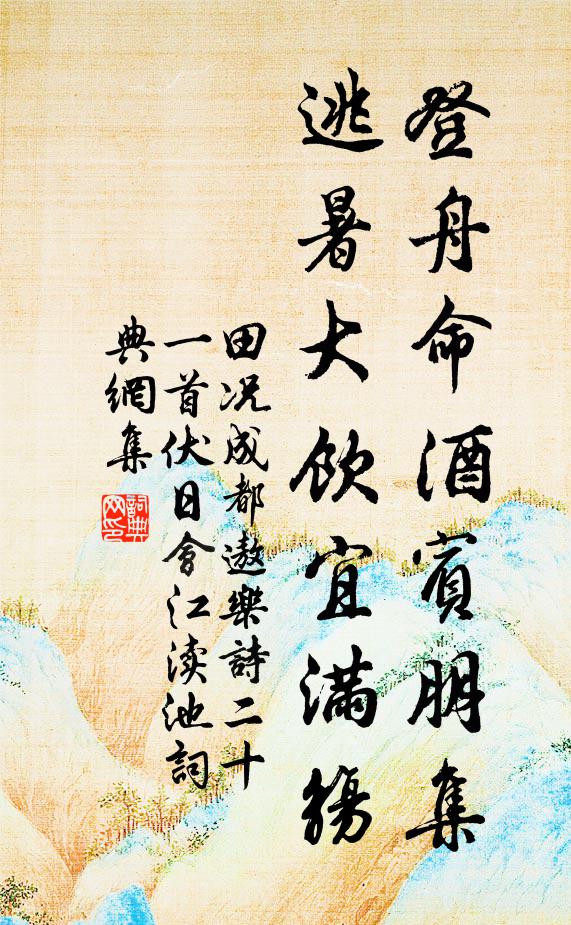 登舟命酒賓朋集
逃暑大飲宜滿觴
田况成都遨樂詩二十
一首伏日會江渎池詞
典網集
詞典